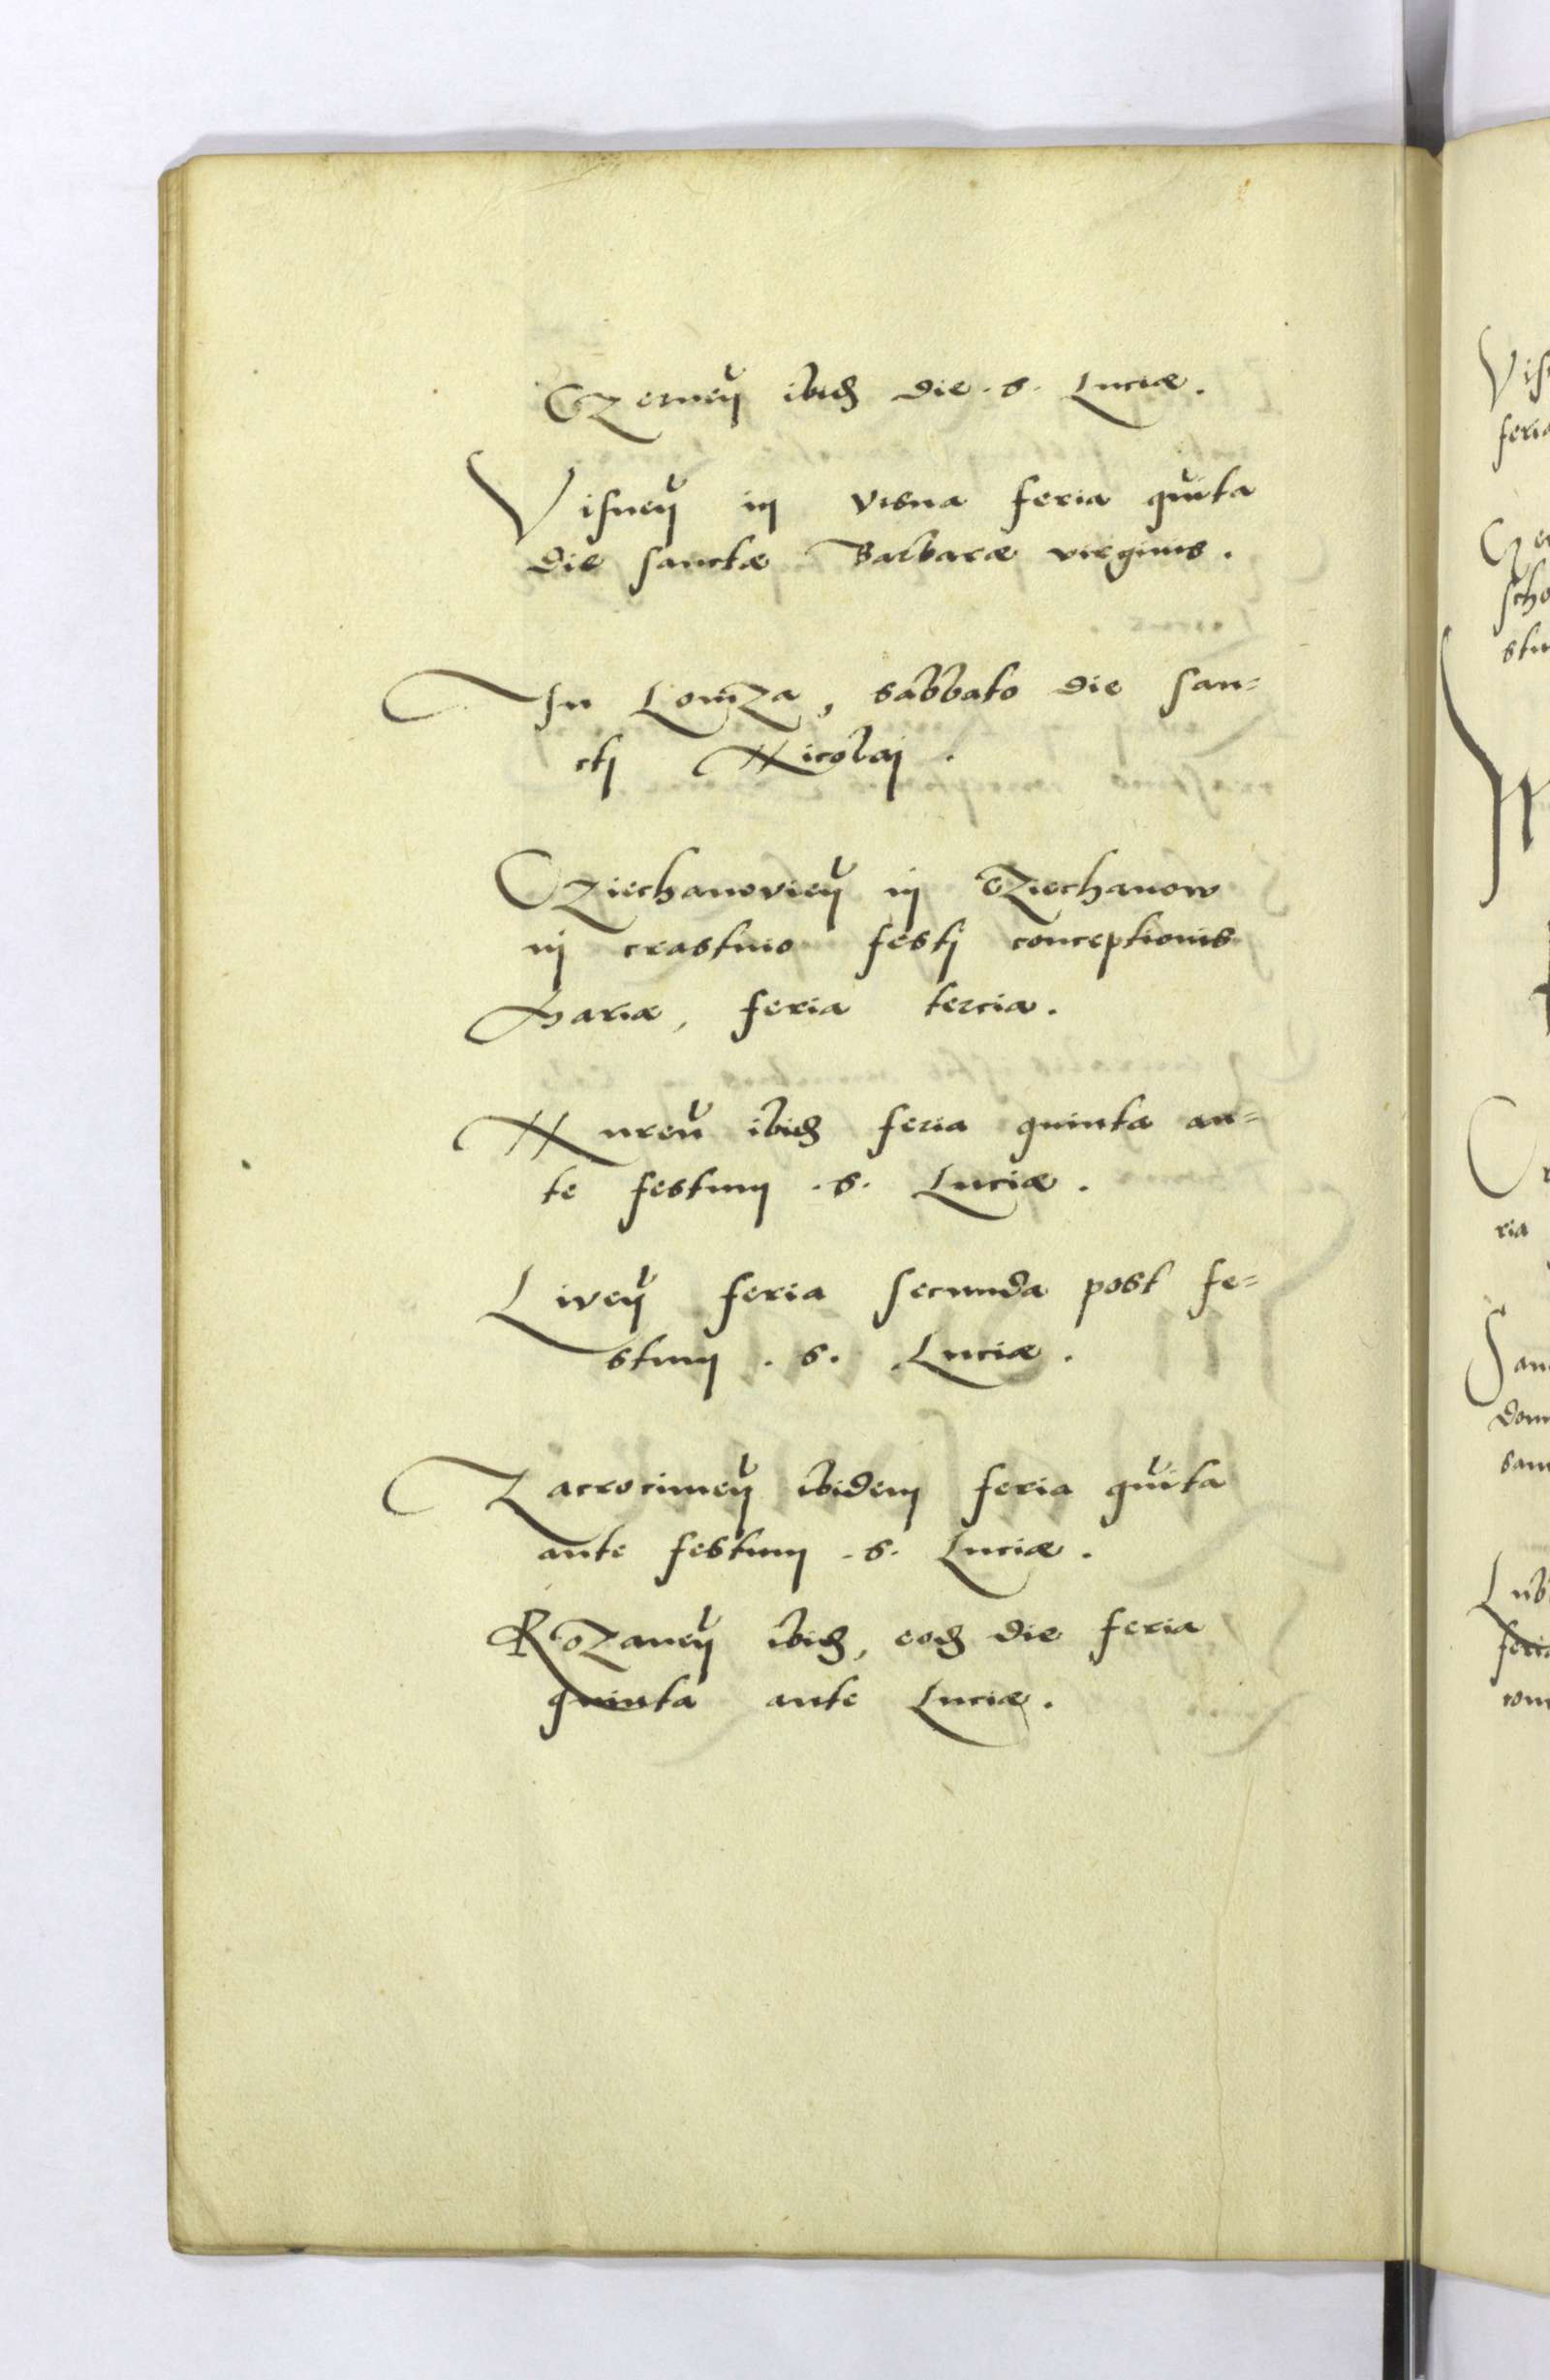 Czerneñ ibid die .s. Luciæ.
Visneñ in visna feria quīta
die sanctæ Barbaræ virginis.
In Lomza, sabbato die san=
cti Nicolai.
Cziechanovieñ in Cziechanow
in crastino festi conceptionis
Mariæ, feria tercia.
Nureñ ibid feria quinta an=
te festum .s. Luciæ.
Liveñ feria secunda post fe=
stum .s. Luciæ.
Zacrocimeñ ibidem feria quīta
ante festum .s. Luciæ.
Rozaneñ ibid, eod die feria
quinta ante Luciæ.